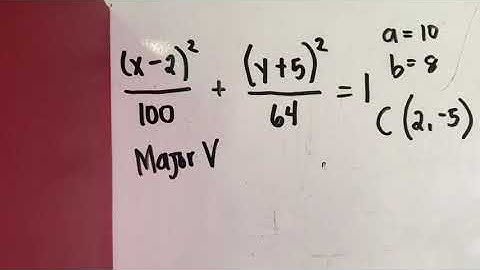 (x-2)² / 100 + (y+5)² / 64 = 1
a = 10
b = 8
C (2, -5)
Major V